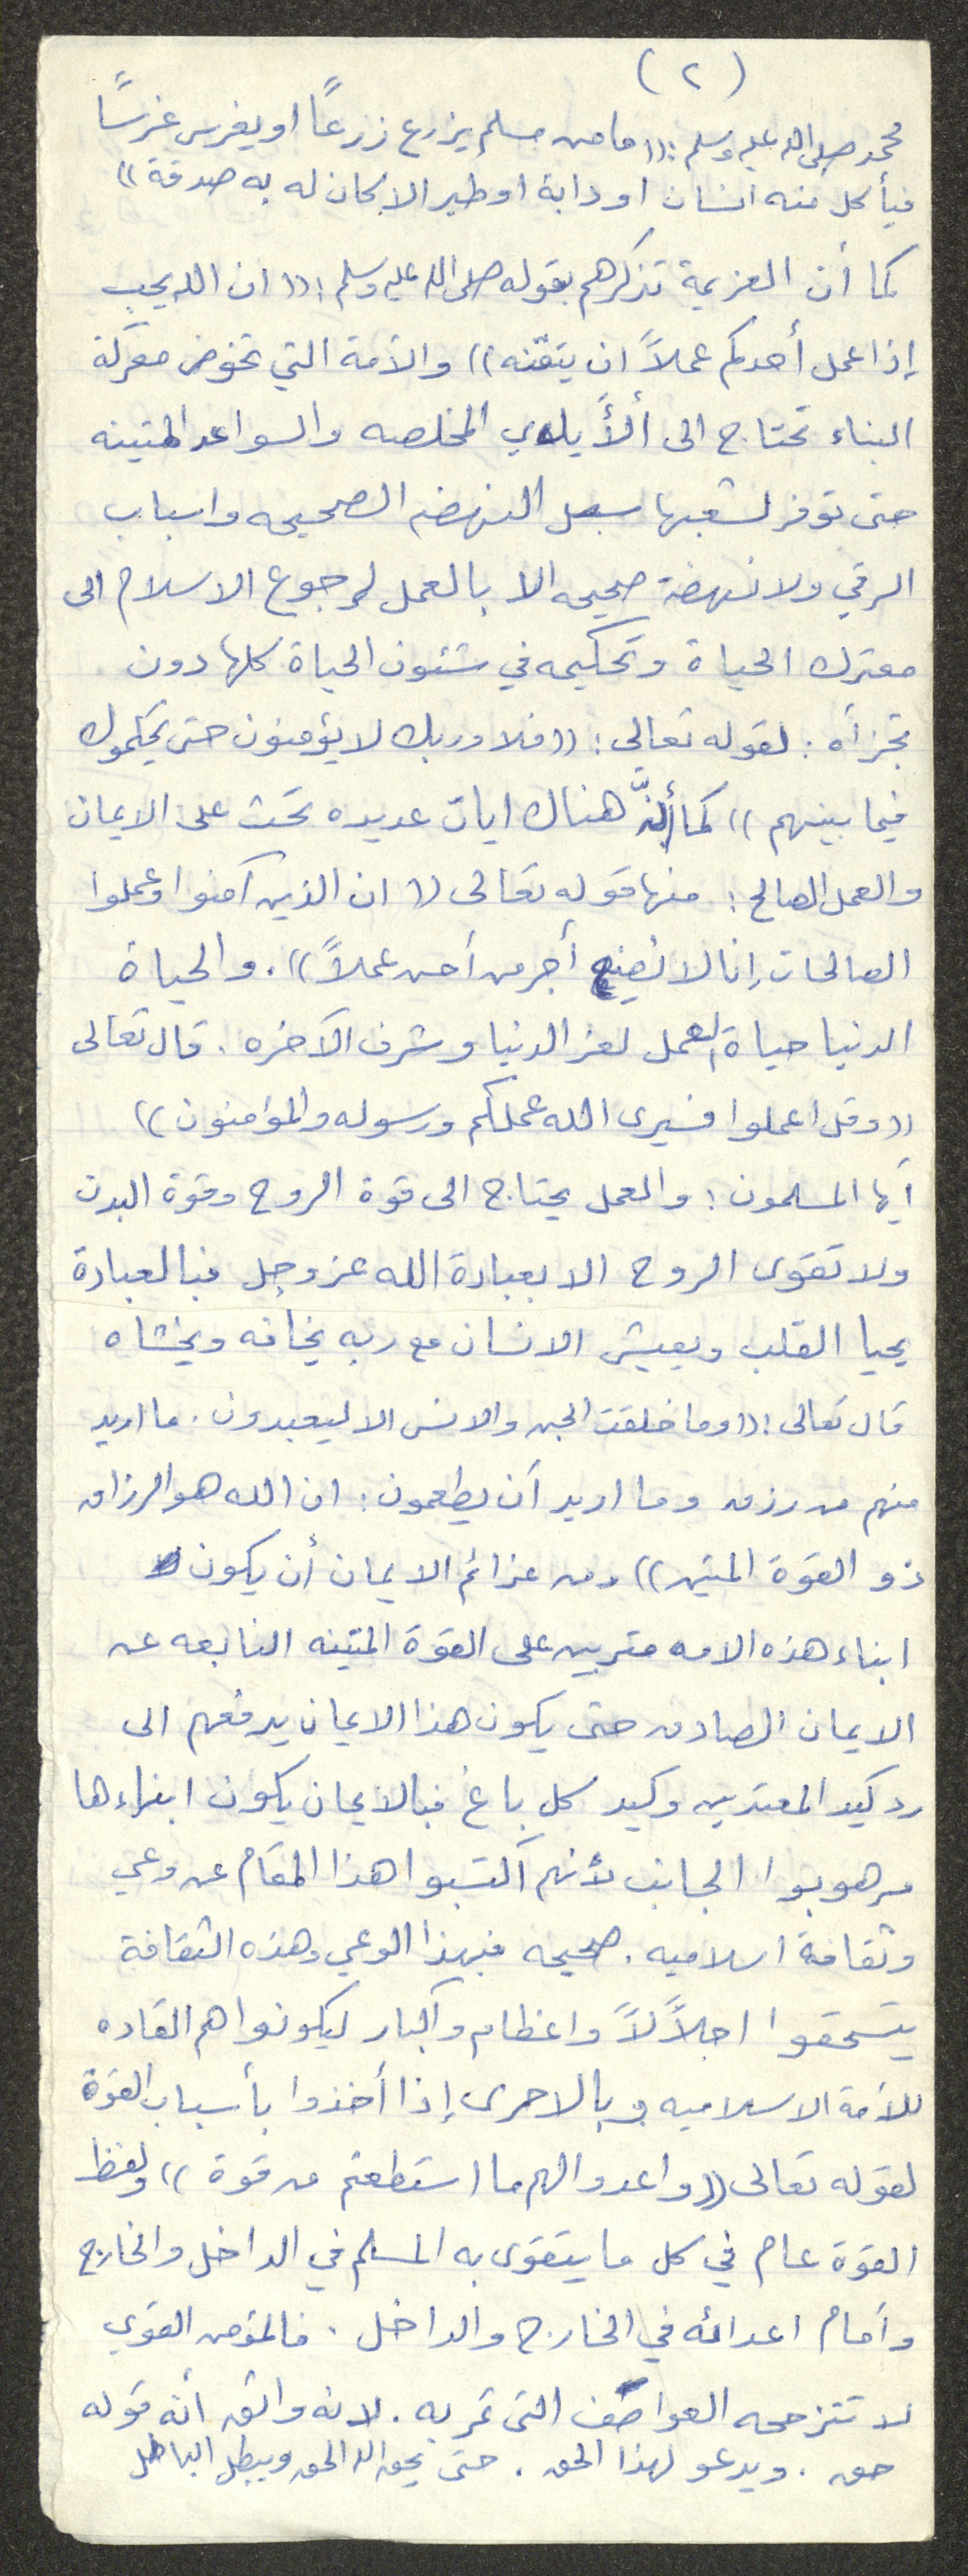 (٢)
محمد صلى الله عليه وسلم : ((ما من مسلم يزرع زرعاً او يغرس غرساً
فيأكل منه انسان او دابة او طير الا كان له به صدقة))
كما أن العزيمة تذكرهم بقوله صلى الله عليه وسلم : ((ان الله يحب
إذا عمل أحدكم عملاً ان يتقنه)) والأمة التي تخوض معركة
البناء تحتاج الى الأيدي المخلصه والسواعد المتينه
حتى توفر لشعبها سبل النهضه الصحيحه واسباب
الرقي ولا نهضة صحيحه الا بالعمل لرجوع الاسلام الى
معترك الحياة وتحكيمه في شئون الحياة كلها دون
تجزأه : لقوله تعالى : ((فلا وربك لا يؤمنون حتى يحكموك
فيما بينهم)) كما أنَّ هناك ايات عديده تحث على الايمان
والعمل الصالح : منها قوله تعالى (( ان الذين آمنوا وعملوا
الصالحات إنا لا نضيع أجر من أحسن عملاً)) . والحياة
الدنيا حياة العمل لعز الدنيا وشرف الآخره . قال تعالى
((وقل اعملوا فسيرى الله عملكم ورسوله والمؤمنون))
أيها المسلمون : والعمل يحتاج الى قوة الروح وقوة البدن
ولا تقوى الروح الا بعبادة الله عز وجل فبالعبادة
يحيا القلب ويعيش الانسان مع ربه يخافه ويخشاه
قال تعالى : ((وما خلقت الجن والانس الا ليعبدون . ما اريد
منهم من رزق وما اريد أن يطعمون : ان الله هو الرزاق
ذو القوة المتين)) ومن عزائم الايمان أن يكون
ابناء هذه الامه متربين على القوة المتينه النابعه عن
الايمان الصادق حتى يكون هذا الايمان يدفعهم الى
رد كيد المعتدين وكيد كل باغ فبالايمان يكون ابناءها
مرهوبوا الجانب لأنهم اكتسبوا هذا المقام عن وعي
وثقافة اسلاميه . صحيحه فبهذا الوعي وهذه الثقافة
يستحقوا اجلاًلاً واعظام واكبار ليكونوا هم القاده
للأمة الاسلاميه وبالاحرى إذا أخذوا بأسباب القوة
لقوله تعالى ((واعدوا لهم ما استطعتم من قوة)) ولفظ
القوة عام في كل ما يتقوى به المسلم في الداخل والخارج
وأمام اعدائه في الخارج والداخل . فالمؤمن القوي
لا تتزحمه العواصف التى تمر به . لانه واثق أنه قوله
حق . ويدعو لهذا الحق . حتى يحق الله الحق ويبطل الباطل